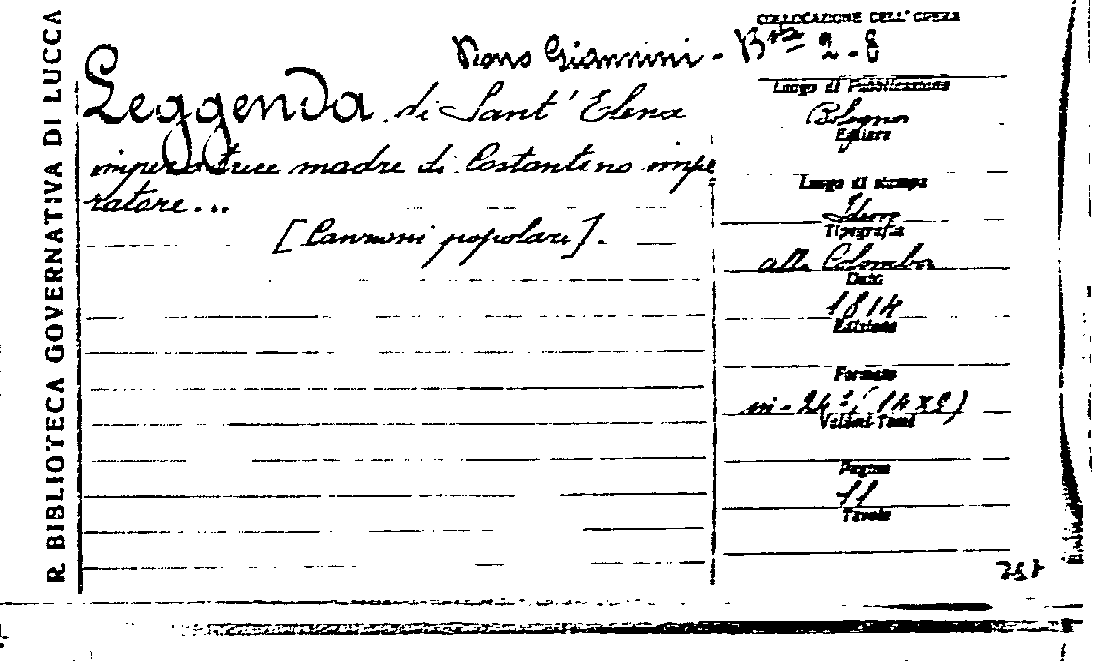 R. BIBLIOTECA GOVERNATIVA DI LUCCA
COLLOCAZIONE DELL'OPERA
Giannini - B.ta 2-8
Leggenda di Sant'Elena
imperatrice madre di Costantino impe
ratore...
[Canzoni popolari].
Luogo di Pubblicazione
Bologna
Editore
Luogo di stampa
Idem
Tipografia
alla Colomba
Data
1814
Edizione
Formato
in-24º (14x8)
Volumi-Tomi
Pagine
11
Tavole